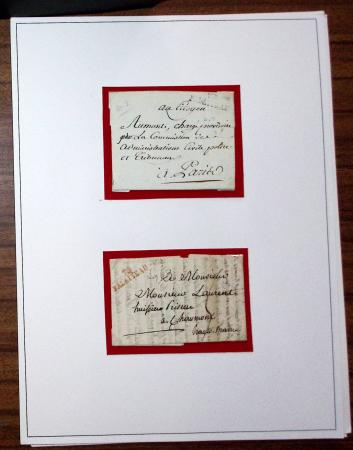 au Citoyen
Aumont, chargé provisoire
par La Commission des
administrations Civils police
et Tribunaux
à Paris
De Monsieur
Monsieur Laurent
huissier
à Chaumont
haute marne